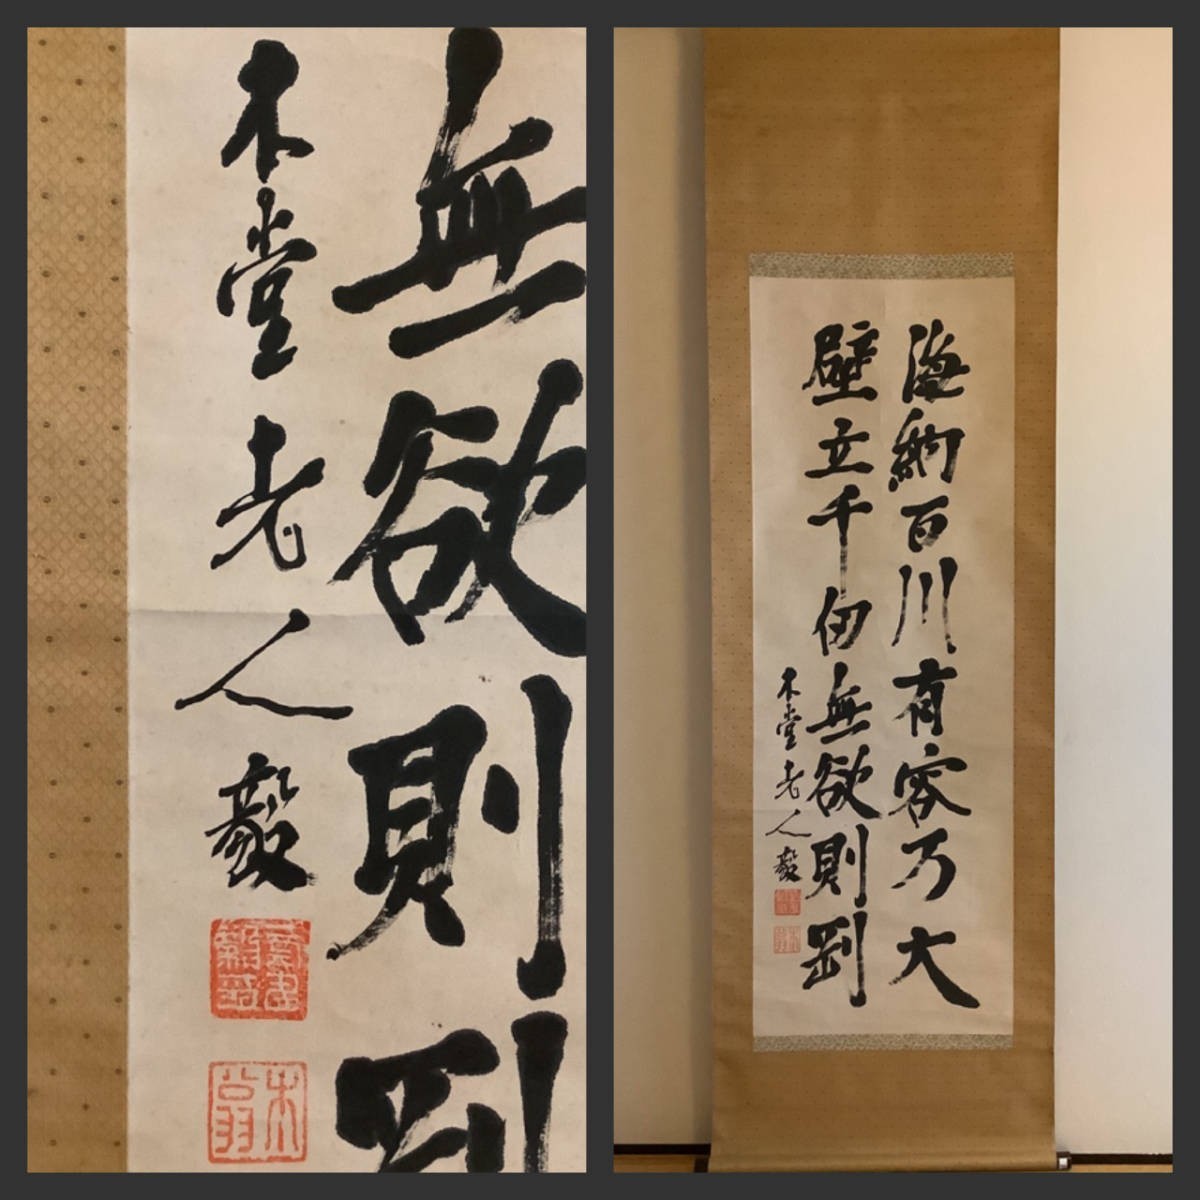 無欲則剛
木堂老人毅
木翁
海納百川有容乃大
壁立千仞無欲則剛
木堂老人毅